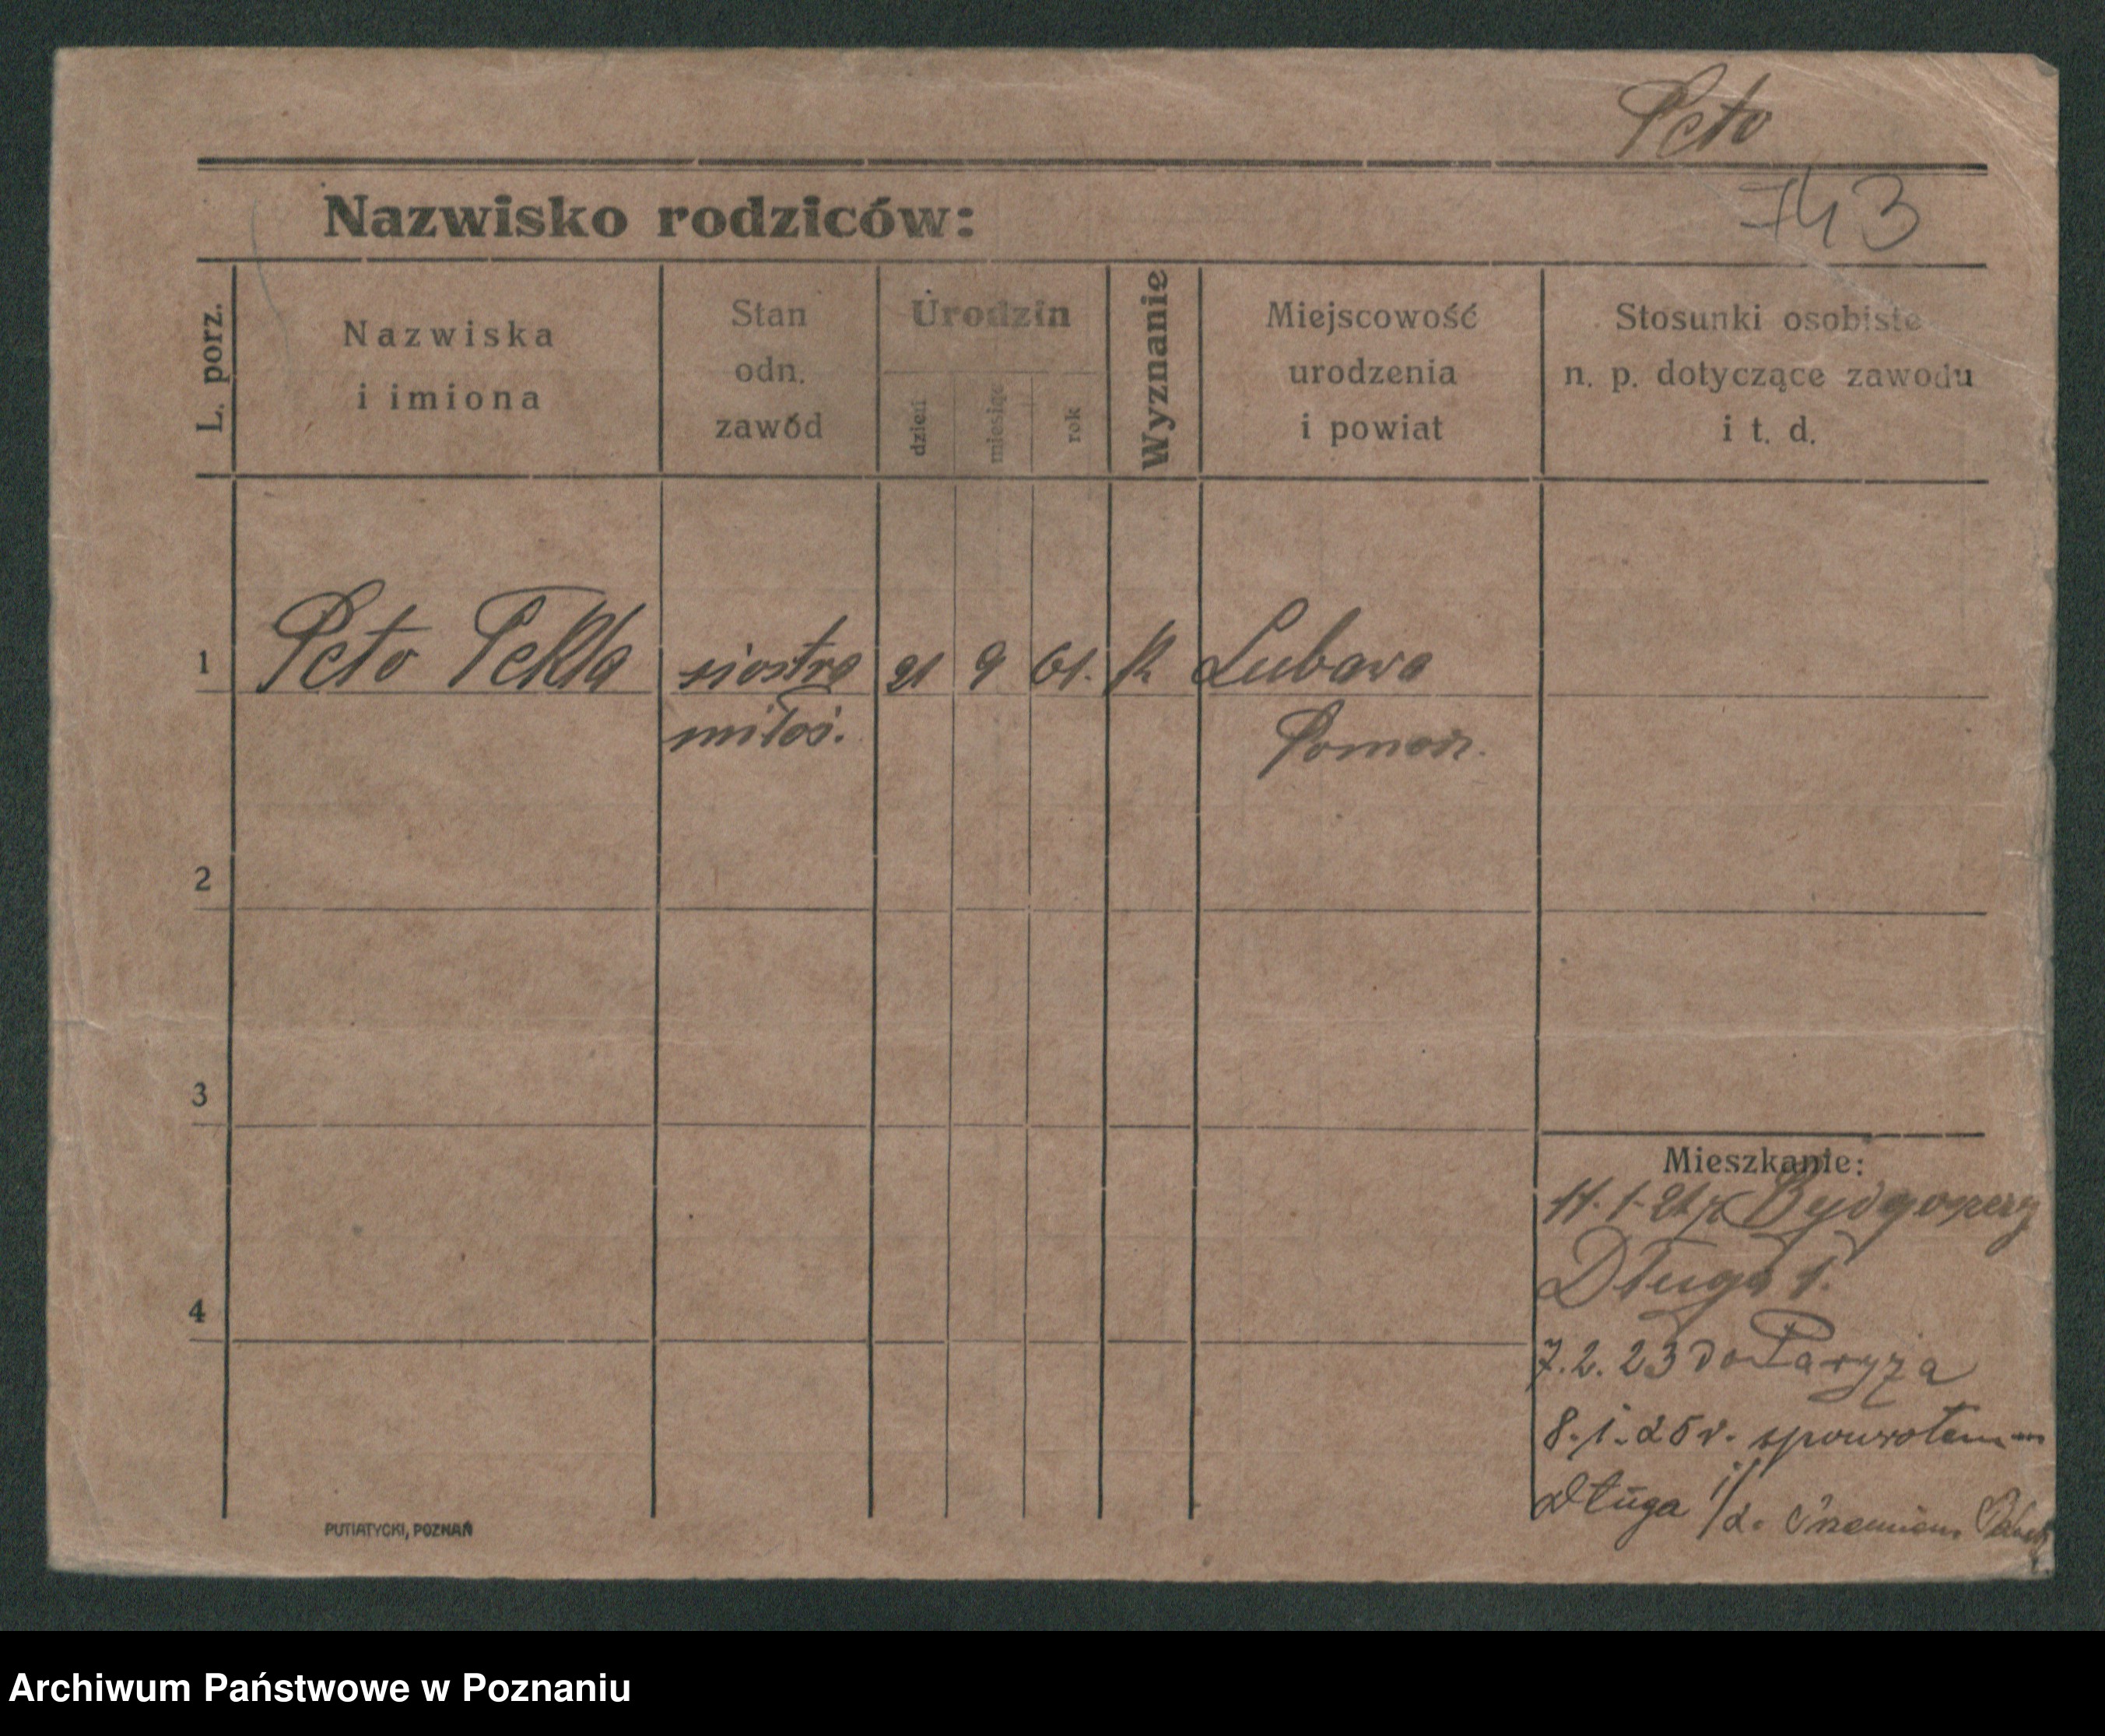 Peto
743
Nazwisko rodziców:
L. porz.
Nazwiska
i imiona
Stan
odn.
zawód
Urodzin
dzień
miesiąc
rok
Wyznanie
Miejscowość
urodzenia
i powiat
Stosunki osobiste
n. p. dotyczące zawodu
i t. d.
1 Peto Tekla siostra 21 9 61. k Lubawa
miłos. Pomorz.
2
3
4
Mieszkanie:
11.1.21 z Bydgoszczy
Długa 1.
7.2.23 do Paryża
8.1.25r. spowrotem
Długa 1/2.
PUTIATYCKI, POZNAŃ
Archiwum Państwowe w Poznaniu